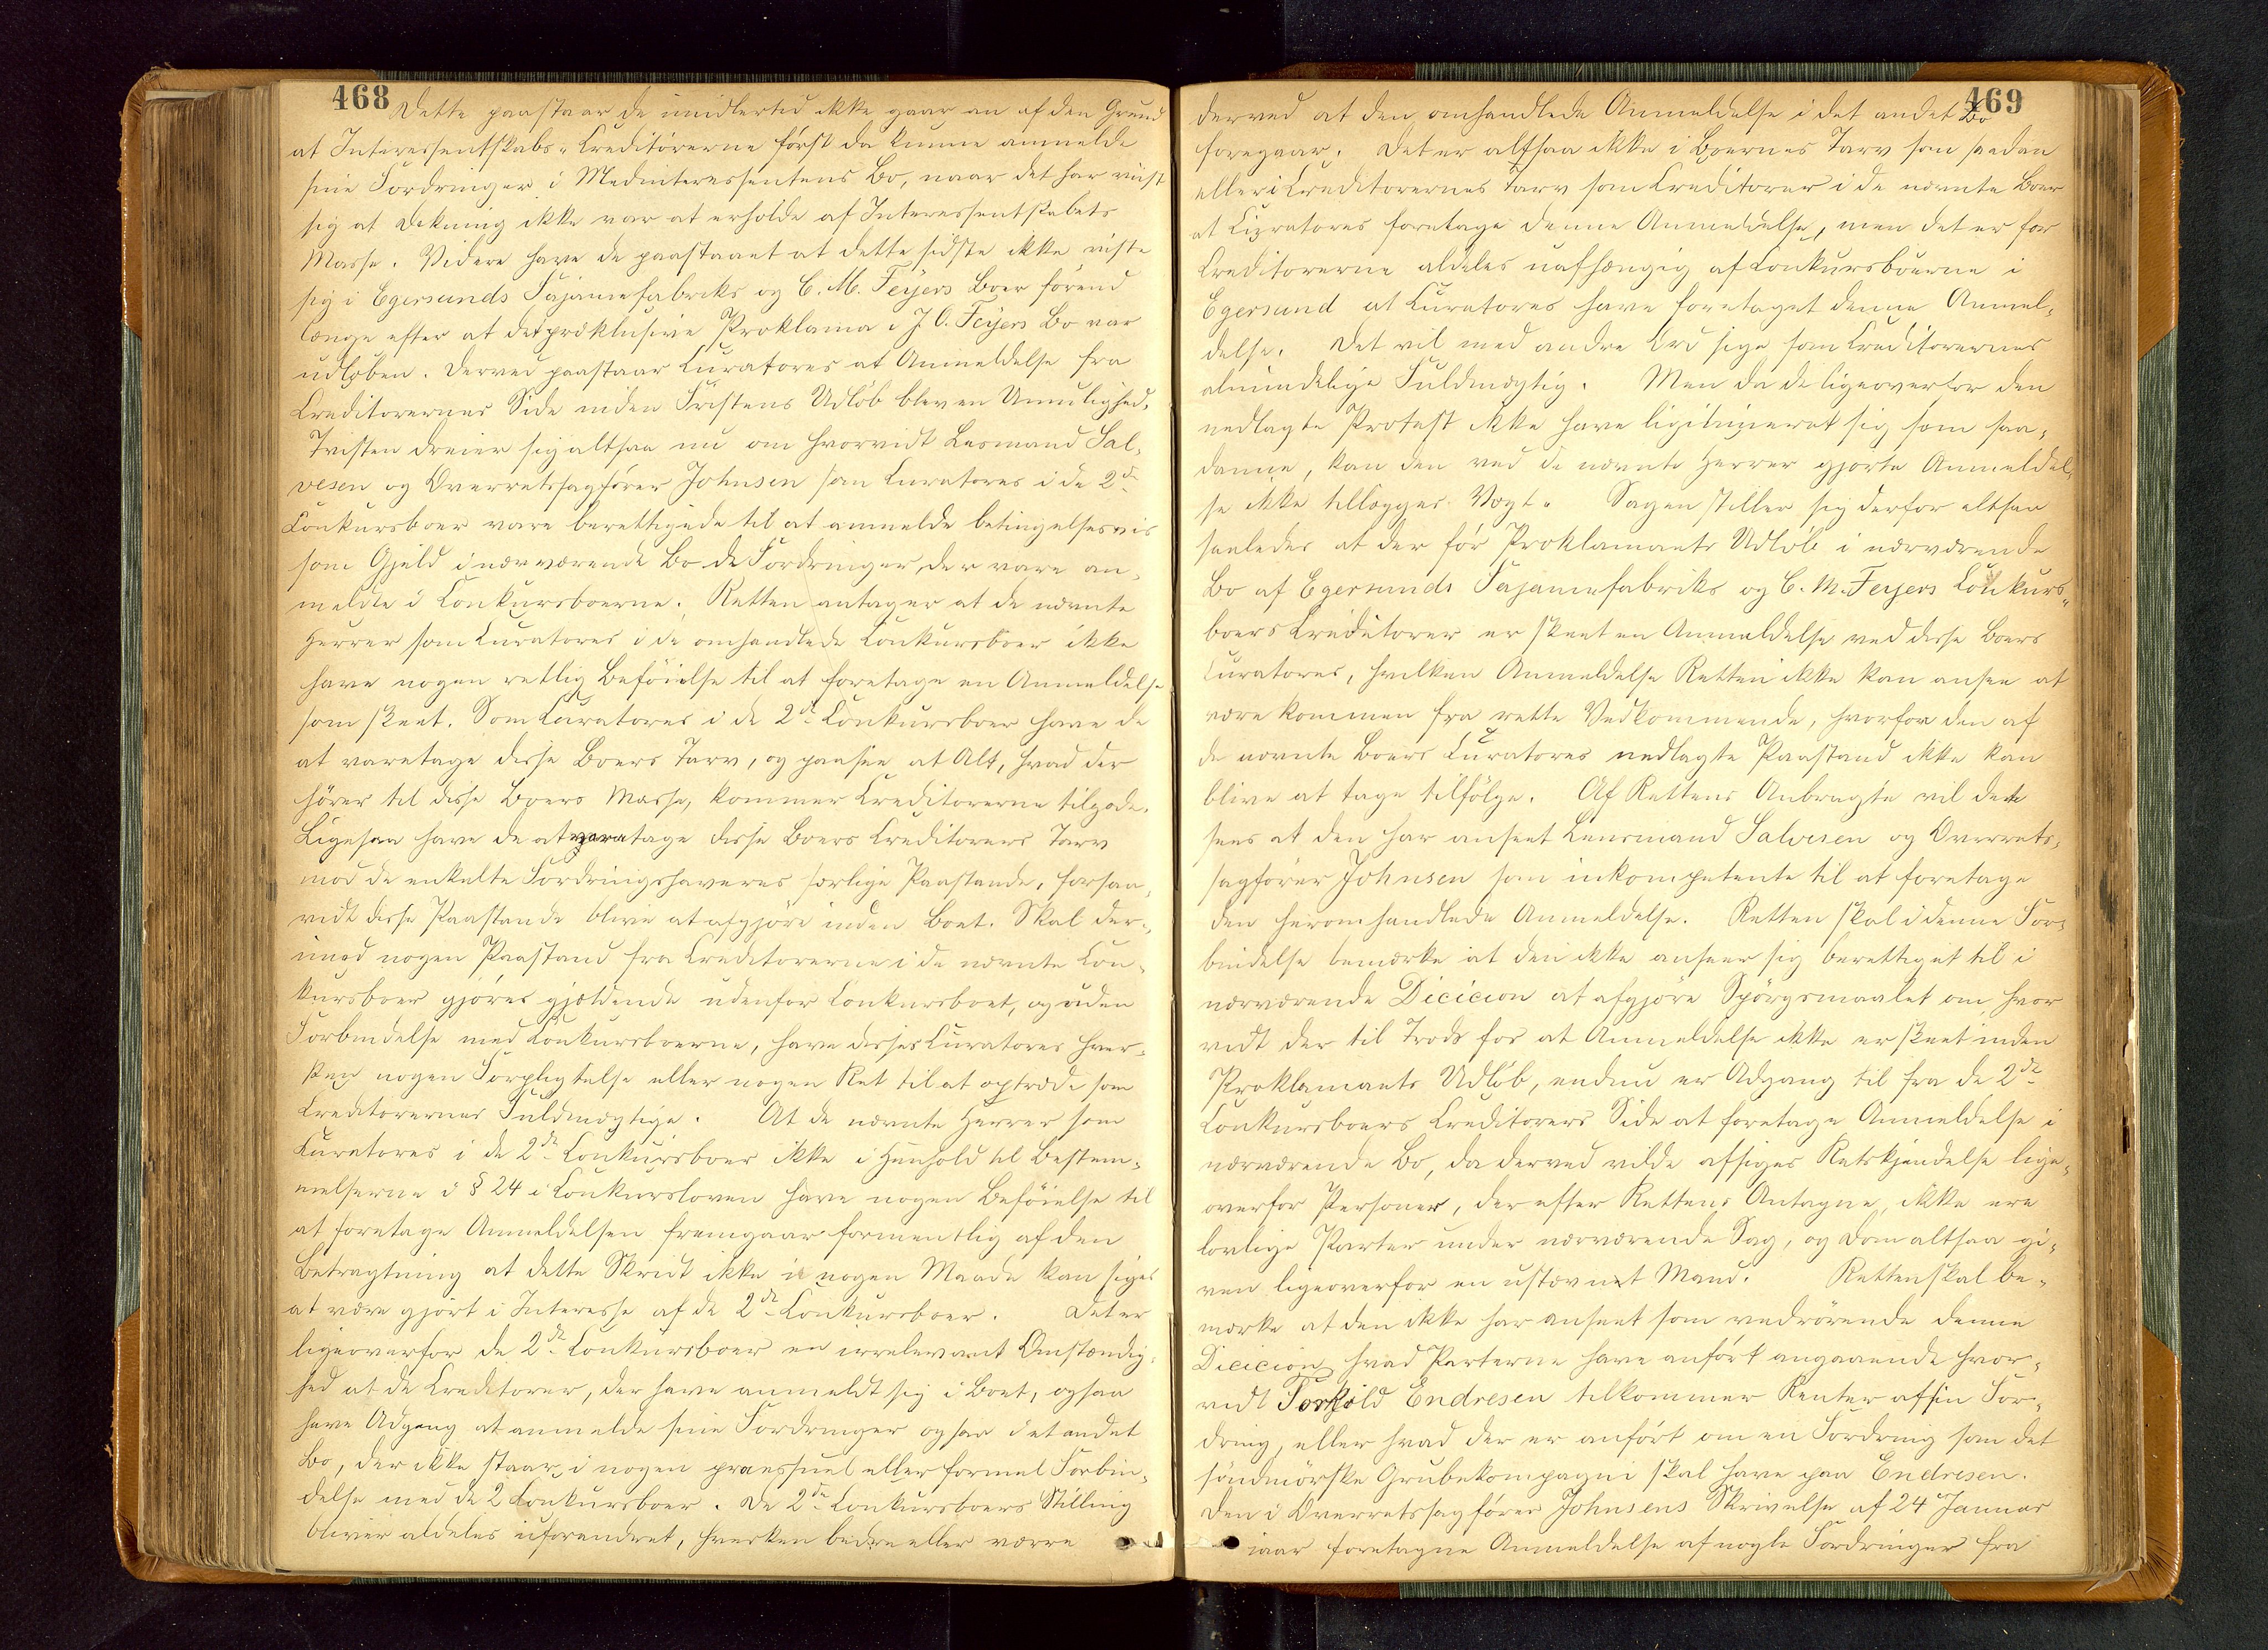 468
Dette paastaar de imidlertid ikke gaar an af den Grund
at Interessentskabs-Creditorerne først da kunne anmelde
sine Fordringer i Medinteressentens Bo, naar det har viist
sig at Dekning ikke var at erholde af Interessentskabets
Masse. Videre have de paastaaet at dette sidste ikke viste
sig i Egersunds Fajancefabriks og C. M. Feyers Boer førend
længe efter at det præklusive Proklama i J. O. Feyers Bo var
udløben. Derved paastaar Curatores at Anmeldelse fra
Creditorernes Side inden Fristens Udløb blev en Umulighed.
Tvisten dreier sig altsaa nu om hvorvidt Lensmand Sal-
vesen og Overretssagfører Johnsen som Curatores i de 2de
Conkursboer vare berettigede til at anmelde betingelsesvis
som Gjeld i nærværende Bo de Fordringer, der vare an-
meldte i Conkursboerne. Retten antager at de nævnte
Herrer som Curatores i de omhandlede Conkursboer ikke
have nogen retlig Beføielse til at foretage en Anmeldelse
som skeet. Som Curatores i de 2de Conkursboer have de
at varetage disse Boers Tarv, og paasee at Alt, hvad der
hører til disse Boers Masse, kommer Creditorerne tilgode.
Ligesaa have de at varetage disse Boers Creditorers Tarv
mod de enkelte Fordringshaveres særlige Paastande, forsaa-
vidt disse Paastande blive at afgjøre inden Boet. Skal der-
imod nogen Paastand fra Creditorerne i de nævnte Con-
kursboer gjøres gjældende udenfor Conkursboet, og uden
Forbindelse med Conkursboerne, have disses Curatores hver-
ken nogen Forpligtelse eller nogen Ret til at optræde som
Creditorernes Fuldmægtige. At de nævnte Herrer som
Curatores i de 2de Conkursboer ikke i Henhold til Bestem-
melserne i § 24 i Conkursloven have nogen Beføielse til
at foretage Anmeldelsen fremgaar formentlig af den
Betragtning at dette Skridt ikke i nogen Maade kan siges
at være gjort i Interesse af de 2de Conkursboer. Det er
ligeoverfor de 2de Conkursboer en irrelevant Omstændig-
hed at de Creditorer, der have anmeldt sig i Boet, ogsaa
have Adgang at anmelde sine Fordringer ogsaa i et andet
Bo, der ikke staar i nogen processuel eller formel Forbin-
delse med de 2 Conkursboer. De 2de Conkursboers Stilling
bliver aldeles uforandret, hverken bedre eller værre
469
derved at den omhandlede Anmeldelse i det andet Bo
foregaar. Det er altsaa ikke i Boernes Tarv som saadan
eller i Creditorernes Tarv som Creditorer i de nævnte Boer
at Curatores foretage denne Anmeldelse, men det er for
Creditorerne aldeles uafhængig af Conkursboerne i
Egersund at Curatores have foretaget denne Anmel-
delse. Det vil med andre Ord sige som Creditorernes
almindelige Fuldmægtig. Men da de ligeoverfor den
nedlagte Protest ikke have ligitimeret sig som saa-
danne, kan den ved de nævnte Herrer gjorte Anmeldel-
se ikke tillægges Vægt. Sagen stiller sig derfor altsaa
saaledes at der før Proklamaets Udløb i nærværende
Bo af Egersunds Fajancefabriks og C. M. Feyers Conkurs-
boers Creditorer er skeet en Anmeldelse ved disse Boers
Curatores, hvilken Anmeldelse Retten ikke kan ansee at
være kommen fra rette Vedkommende, hvorfor den af
de nævnte Boers Curatores nedlagte Paastand ikke kan
blive at tage tilfølge. Af Rettens Anbragte vil dette
sees at den har anseet Lensmand Salvesen og Overrets-
sagfører Johnsen som inkompetente til at foretage
den heromhandlede Anmeldelse. Retten skal i denne For-
bindelse bemærke at den ikke anseer sig berettiget til i
nærværende Dicicion at afgjøre Spørgsmaalet om, hvor
vidt der til Trods for at Anmeldelse ikke er skeet inden
Proklamaets Udløb, endnu er Adgang til fra de 2de
Conkursboers Creditorers Side at foretage Anmeldelse i
nærværende Bo, da derved vilde afsiges Retskjendelse lige-
overfor Personer, der efter Rettens Antagne, ikke ere
lovlige Parter under nærværende Sag, og Dom altsaa gi-
ven ligeoverfor en ustævnet Mand. Retten skal be-
mærke at den ikke har anseet som vedrørende denne
Dicicion hvad Parterne have anført angaaende hvor-
vidt Torkild Endresen tilkommer Renter af sin For-
dring, eller hvad der er anført om en Fordring som det
søndmørske Grubekompagni skal have paa Endresen.
Den i Overretssagfører Johnsens Skrivelse af 24 Januar
iaar foretagne Anmeldelse af nogle Fordringer fra